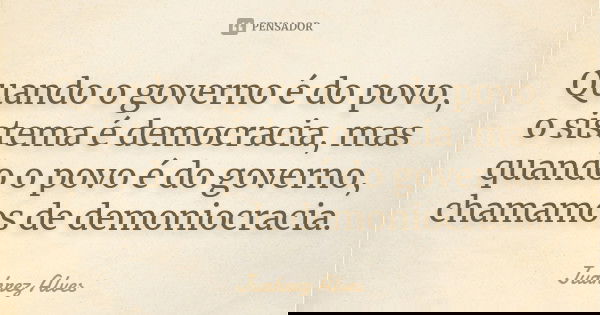 PENSADOR
Quando o governo é do povo,
o sistema é democracia, mas
quando o povo é do governo,
chamamos de demoniocracia.
Juarez Alves